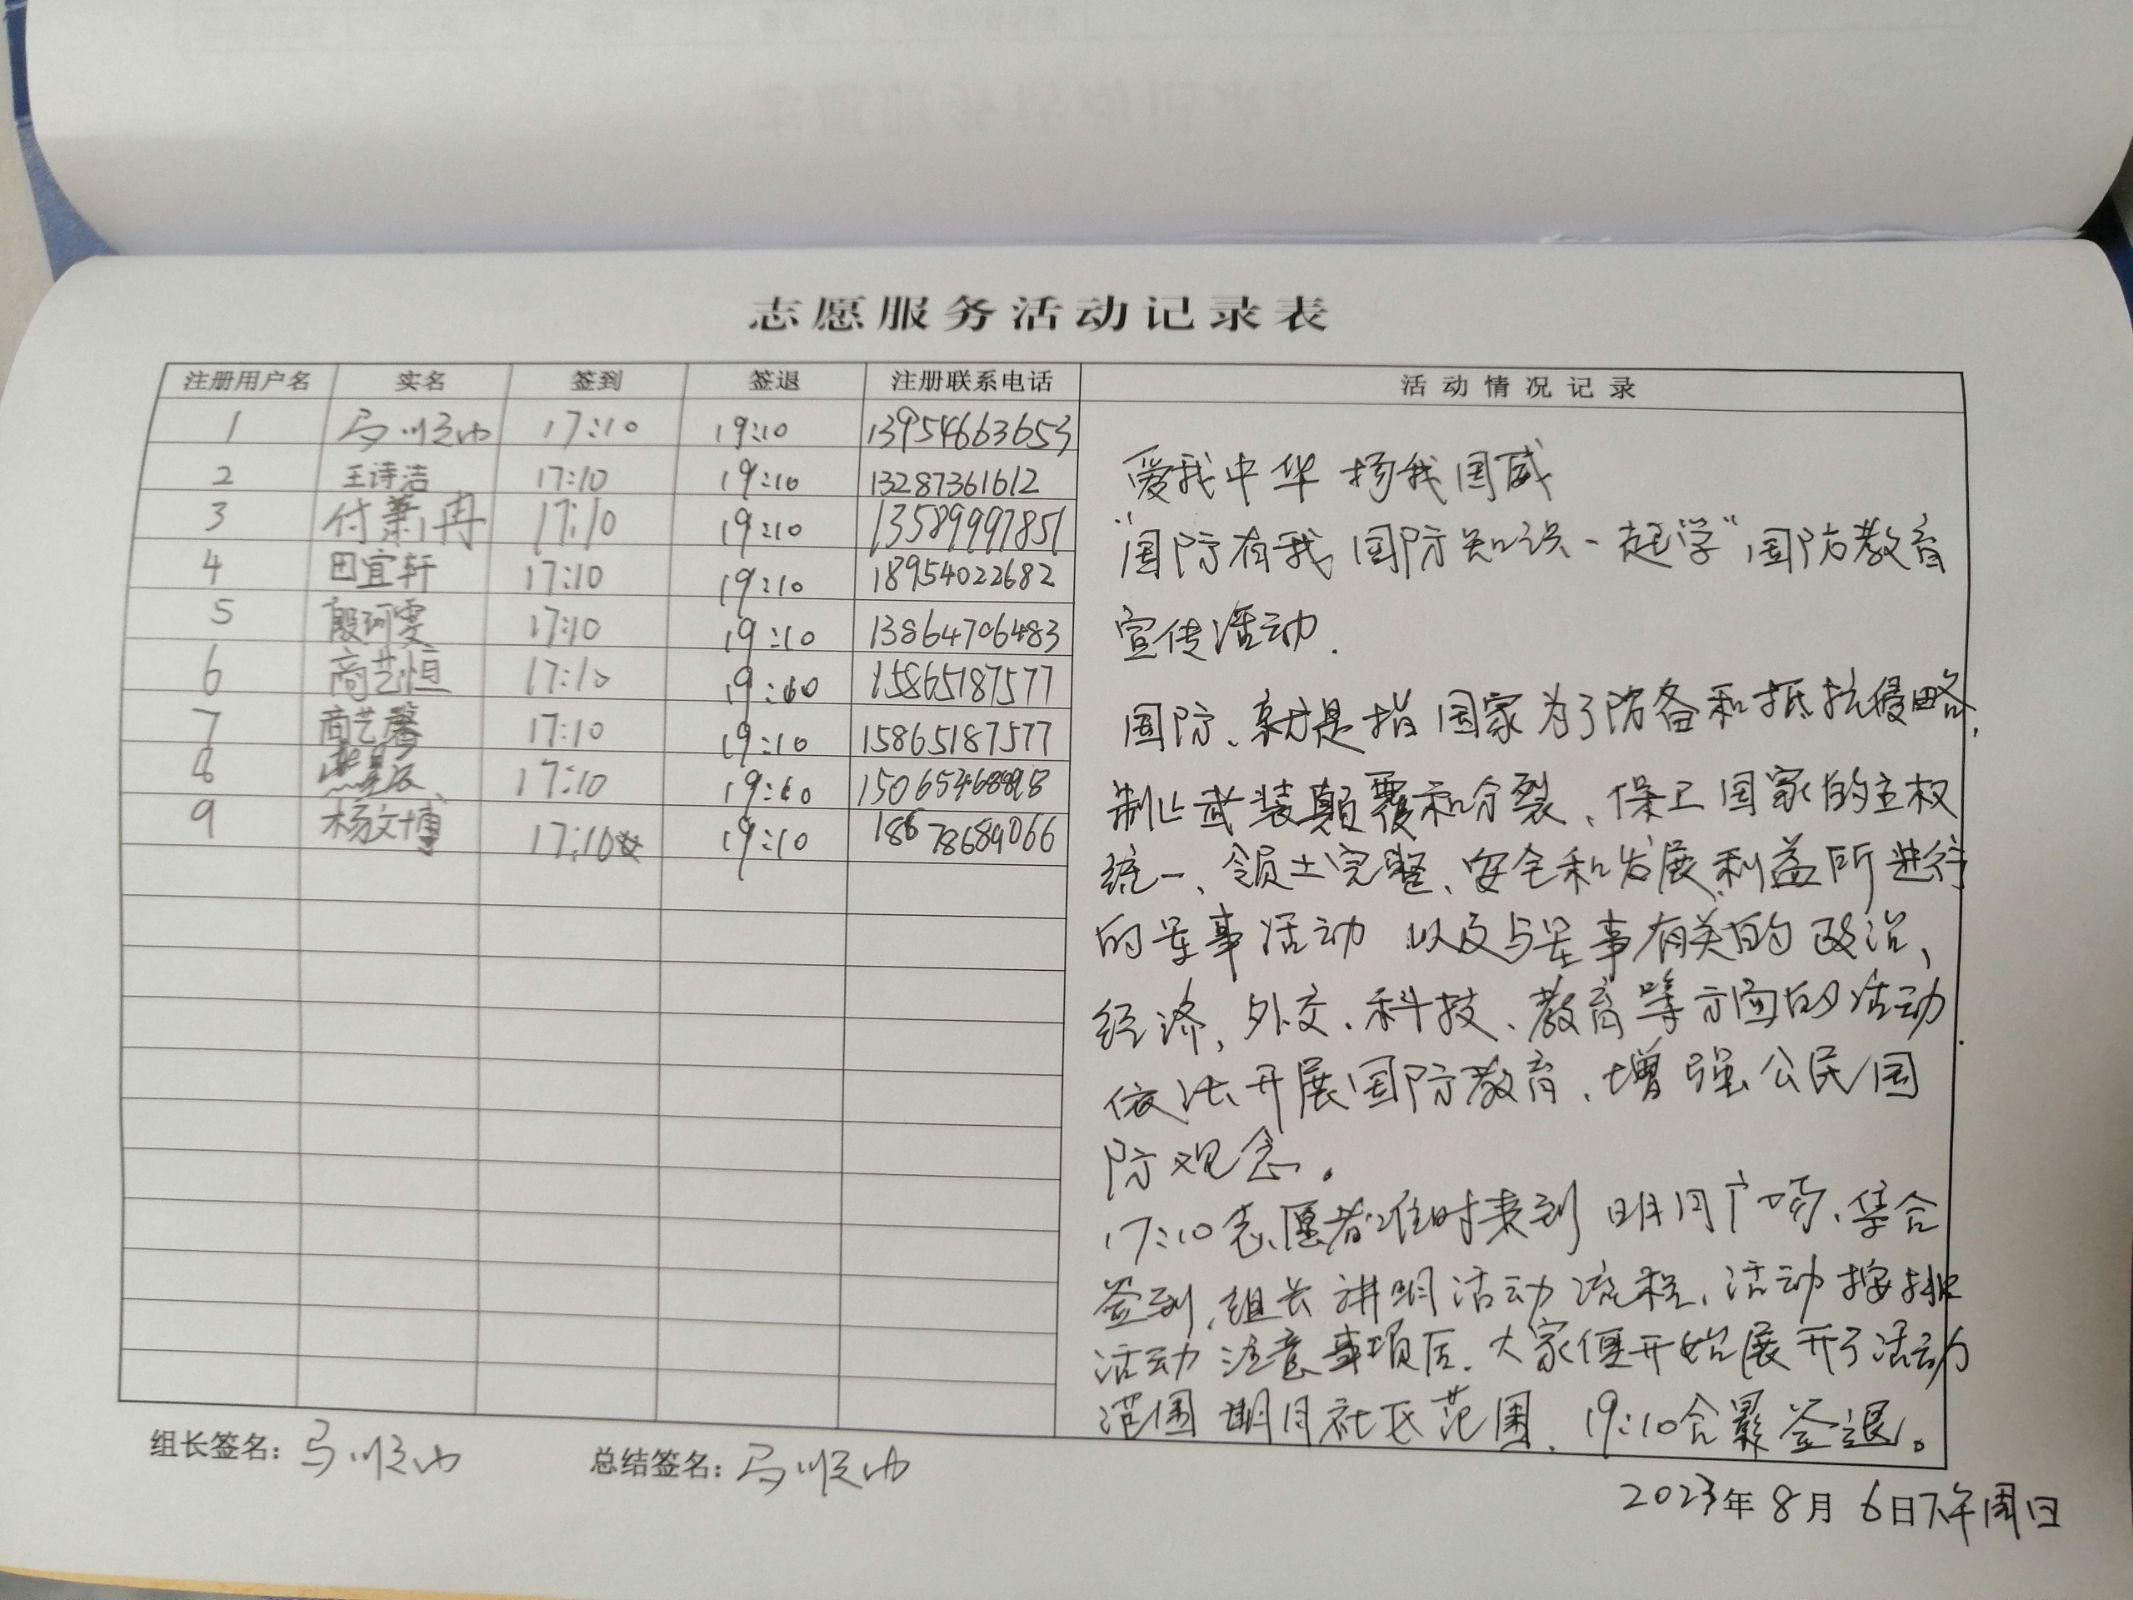 志愿服务活动记录表
注册用户名 实名 签到 签退 注册联系电话 活动情况记录
1 马顺 17:10 19:10 13954663653
2 王诗洁 17:10 19:10 13287361612
3 付萧冉 17:10 19:10 13589997851
4 田宜轩 17:10 19:10 18954022682
5 殷珂雯 17:10 19:10 13864706483
6 商艺恒 17:10 19:10 15865187577
7 商艺馨 17:10 19:10 15865187577
8 17:10 19:10
9 杨文博 17:10 19:10 18678689066
爱我中华 扬我国威
“国防有我 国防知识一起学”国防教育
宣传活动.
国防、就是指国家为了防备和抵抗侵略,
制止武装颠覆和分裂、保卫国家的主权
统一、领土完整、安全和发展利益所进行
的军事活动 以及与军事有关的政治、
经济、外交、科技、教育等方面的活动.
依法开展国防教育、增强公民国
防观念。
17:10志愿者准时来到 明月广场、集合
签到,组长讲明活动流程、活动按排
活动注意事项后.大家便开始展开了活动
范围 明月社区范围.19:10合影签退。
组长签名:马顺 总结签名:马顺
2023年8月6日下午周日